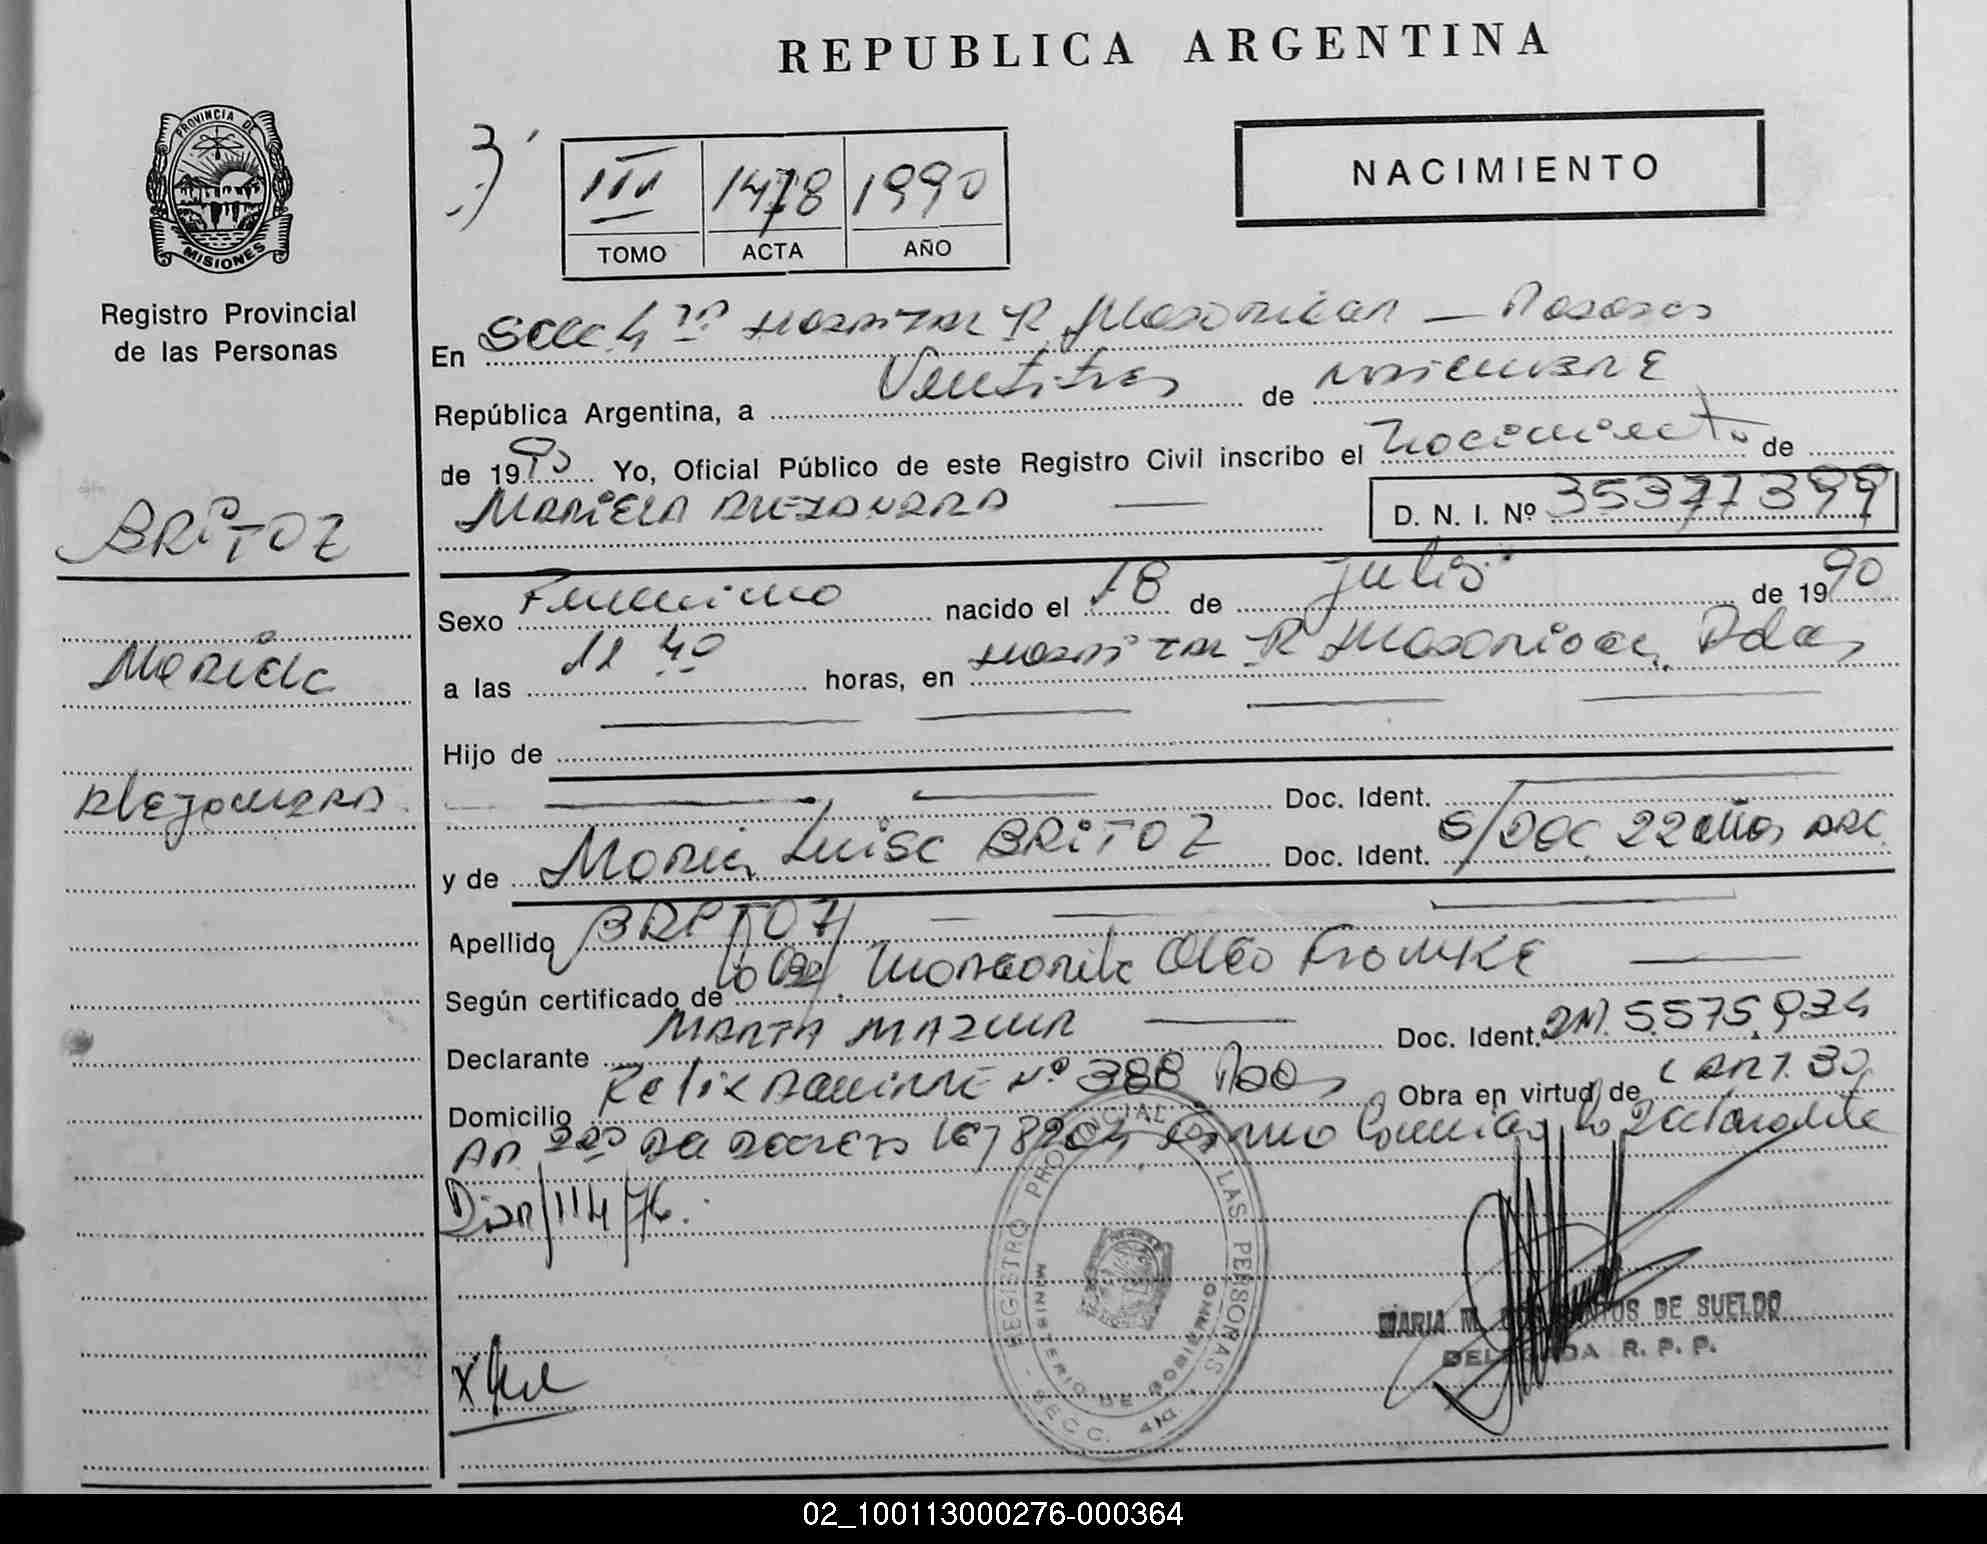 REPUBLICA ARGENTINA
PROVINCIA DE
MISIONES
Registro Provincial
de las Personas
NACIMIENTO
III 1478 1990
TOMO ACTA AÑO
En Secc 4ta Hospital R Madariaga — Posadas
República Argentina, a Veintitres de noviembre
de 1990 Yo, Oficial Público de este Registro Civil inscribo el Nacimiento de
MARIELA ALEJANDRA — D. N. I. Nº 35377399
BRITOZ
Mariela
Alejandra
Sexo Femenino nacido el 18 de julio de 1990
a las 11 40 horas, en Hospital R Madariaga Pdas
Hijo de
Doc. Ident.
y de Maria Luisa BRITOZ Doc. Ident. S/DOC 22 años ARG
Apellido BRITOZ
Según certificado de Margarita Olga
Declarante MARTA MAZUR Doc. Ident. 5.575.934
Domicilio Felix Aguirre Nº 388 Pdas Obra en virtud de Art. 30
del Decreto Ley 8204 la Declarante
X
REGISTRO PROVINCIAL DE LAS PERSONAS
MINISTERIO DE GOBIERNO
SECC. 4ta.
MARIA M. DE SUELDO
DELEGADA R. P. P.
02_100113000276-000364